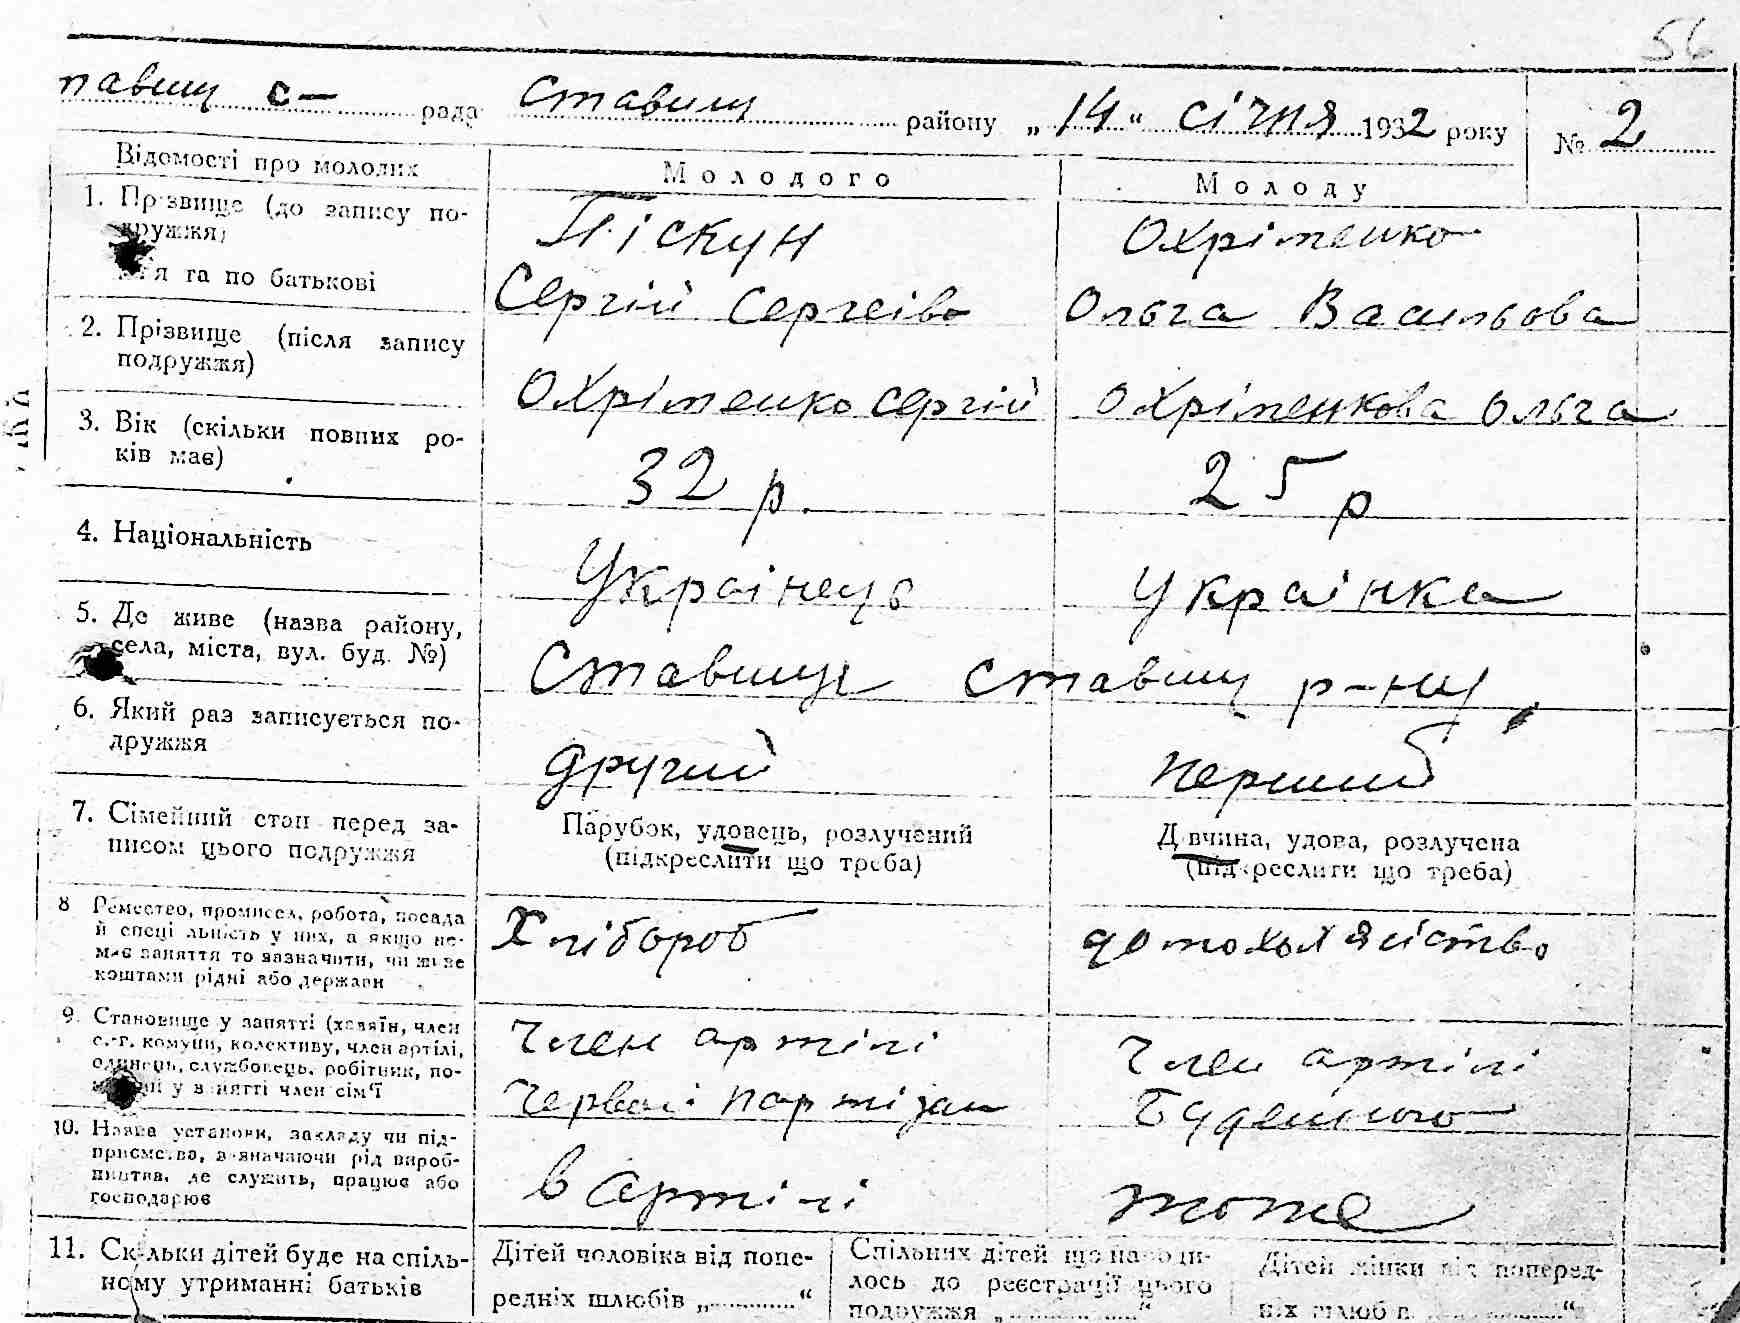 56
павищ с- рада Ставищ району „14“ січня 1932 року № 2
Відомості про молодих Молодого Молоду
1. Прізвище (до запису по-
дружжя) Піскун Охріменко
я та по батькові Сергій Сергеіво Ольга Васильова
2. Прізвище (після запису
подружжя) Охріменко Сергій Охріменкова Ольга
3. Вік (скільки повних ро-
ків має) 32 р. 25 р
4. Національність Украінець Украінка
5. Де живе (назва району,
села, міста, вул. буд. №) Ставище Ставищ р-ну
6. Який раз записується по-
дружжя другий перший
7. Сімейний стан перед за-
писом цього подружжя
Парубок, удовець, розлучений Дівчина, удова, розлучена
(підкреслити що треба) (підкреслити що треба)
8 Ремество, промисел, робота, посада
й спеціяльність у них, а якщо не-
має заняття то зазначити, чи живе
коштами рідні або держави
Хлібороб домохозяйство
9. Становище у занятті (хазяїн, член
с.-г. комуни, колективу, член артілі,
одинець, службовець, робітник, по-
у занятті член сім'ї
Член артілі Член артілі
Червоі партізан Буденного
10. Назва установи, закладу чи під-
приємства, зазначаючи рід вироб-
ництва, де служить, працює або
господарює
в артілі тоже
11. Скільки дітей буде на спіль-
ному утриманні батьків
Дітей чоловіка від попе-
редніх шлюбів „ “
Спільних дітей що народи-
лось до реєстрації цього
подружжя „ “
Дітей жінки від поперед-
ніх шлюбів „ “